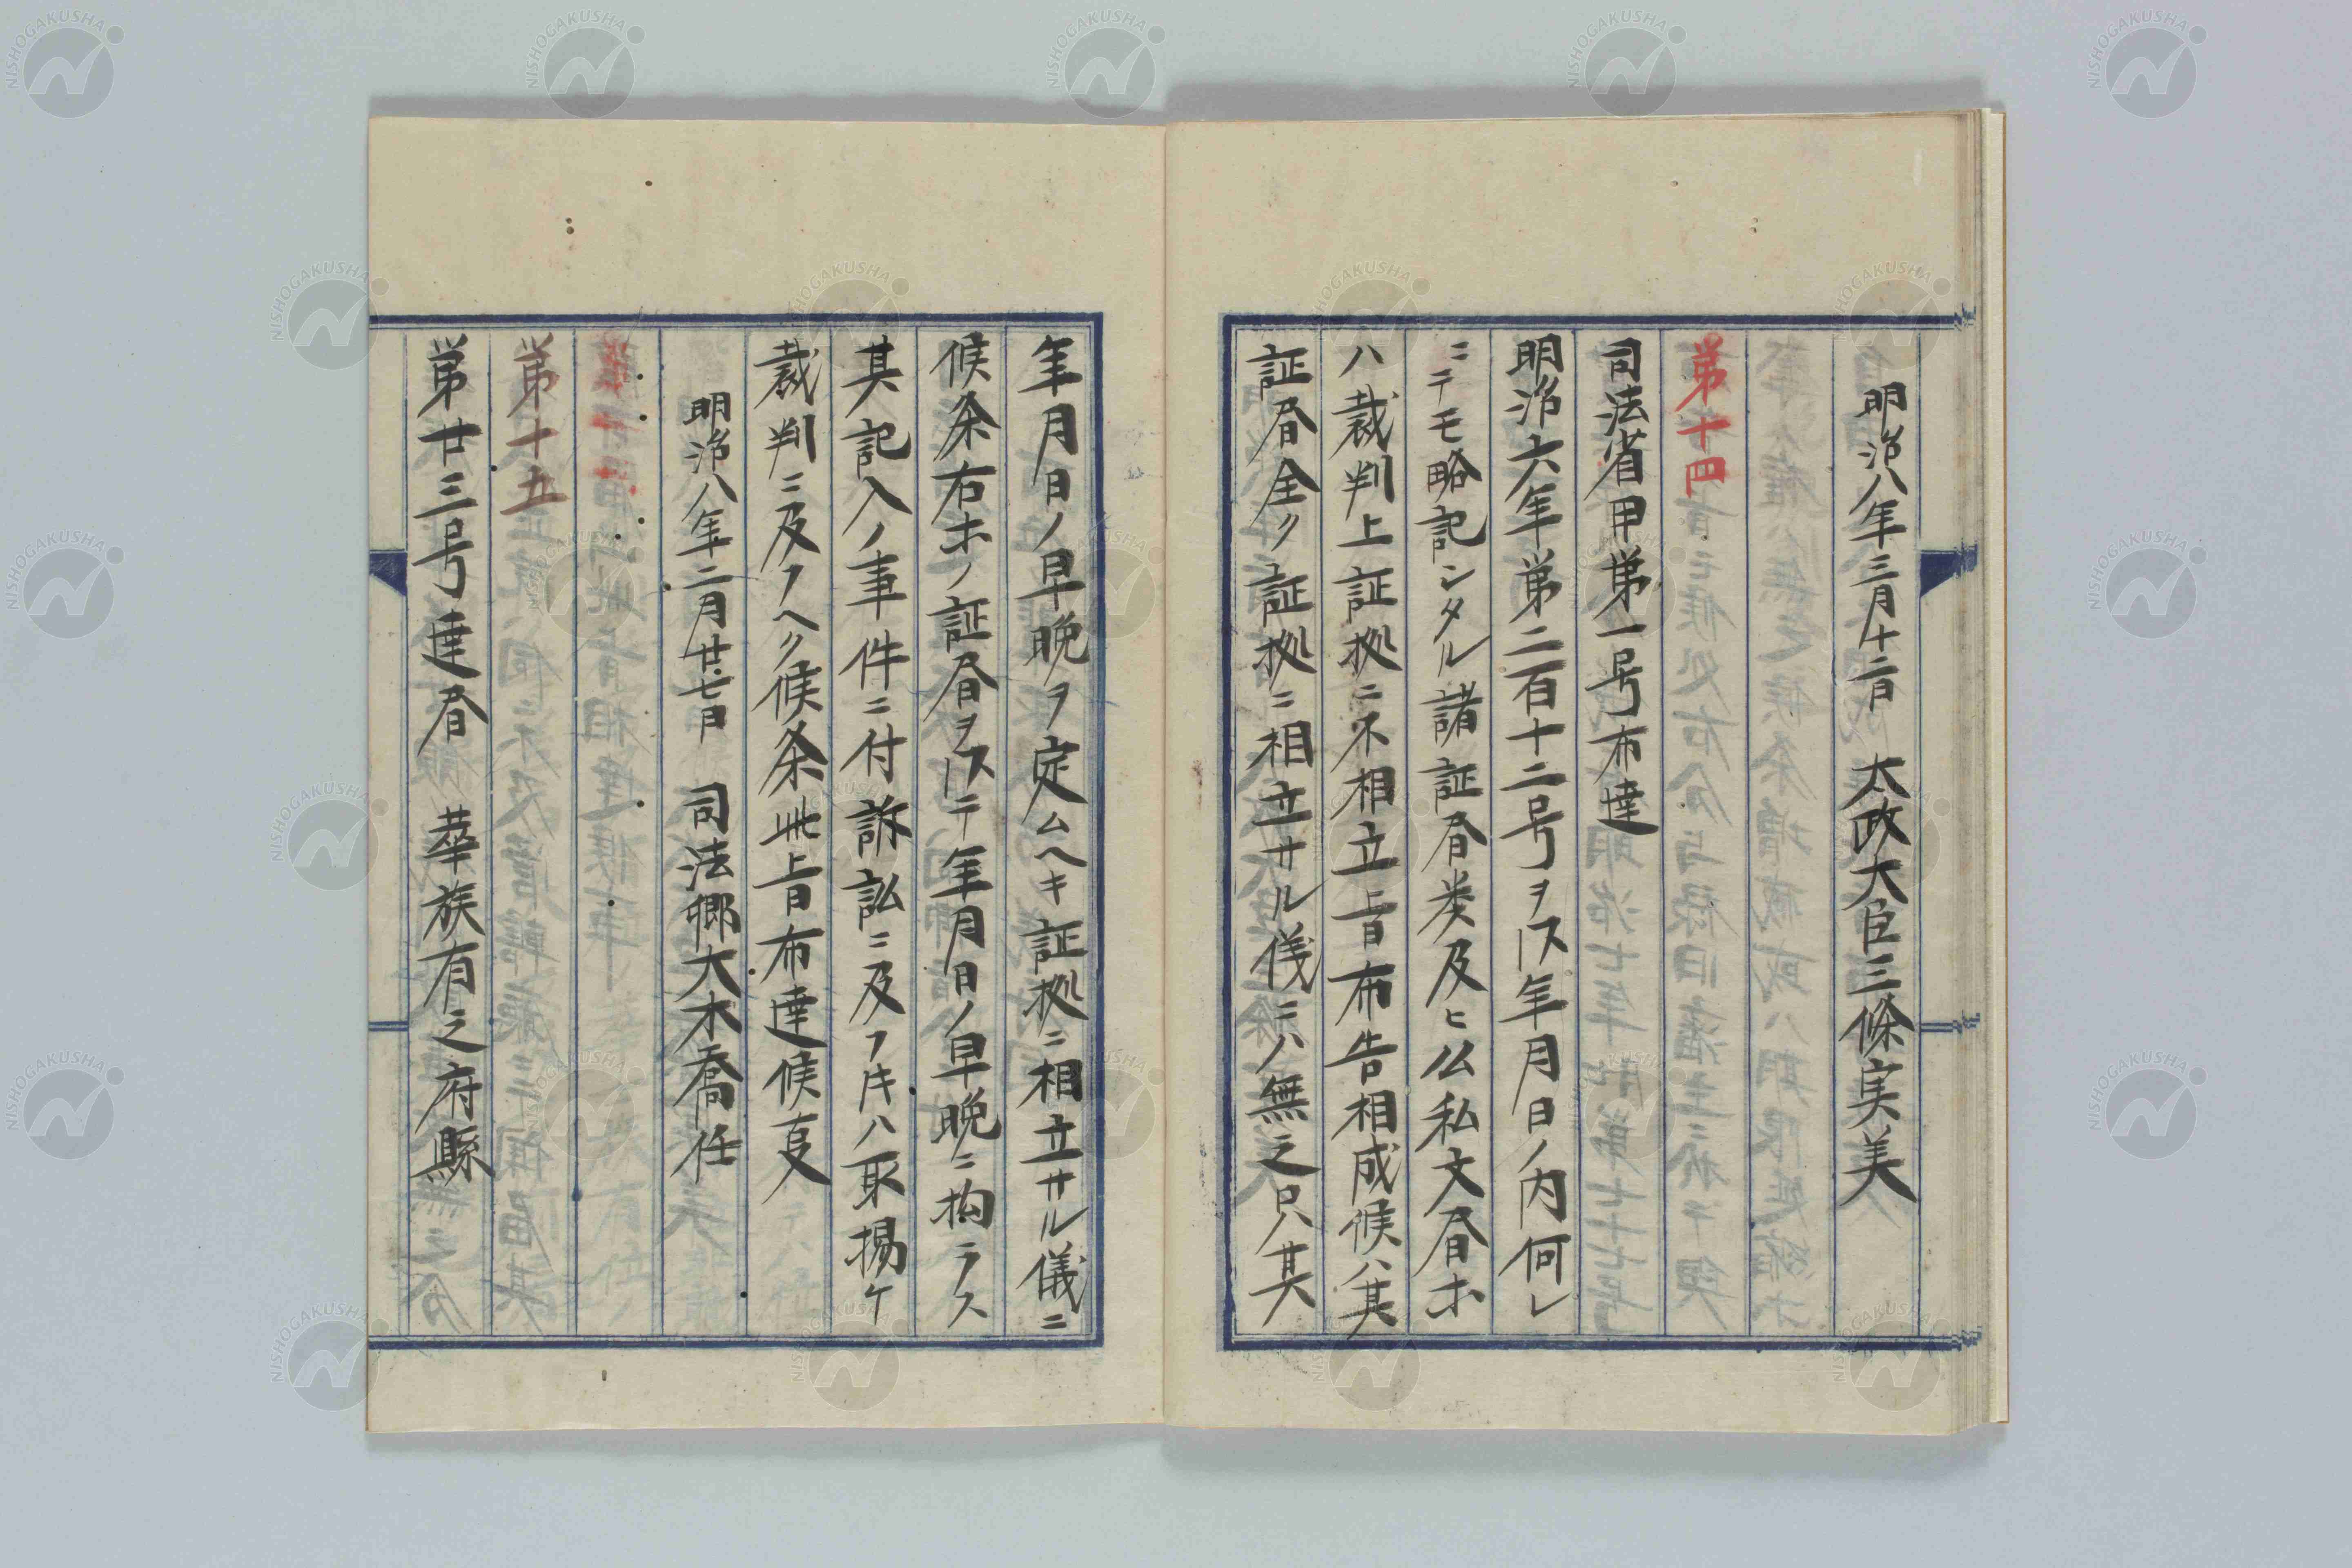 明治八年三月十二日　太政大臣三條実美
第十四
司法省甲第一号布達
明治六年第二百十二号ヲ以年月日ノ内何レ
ニテモ略記シタル諸証書類及ヒ公私文書等
ハ裁判上証拠ニ不相立旨布告相成候ハ其
証書全ク証拠ニ相立サル儀ニハ無之只其
年月日ノ早晩ヲ定ムヘキ証拠ニ相立サル儀ニ
候条右等ノ証書ヲ以テ年月日ノ早晩ニ拘ラス
其記入ノ事件ニ付訴訟ニ及フ片ハ取揚ケ
裁判ニ及フヘク候条此旨布達候事
明治八年二月廿七日　司法卿大木喬任
第十五
第廿三号達書　華族有之府縣
NISHOGAKUSHA